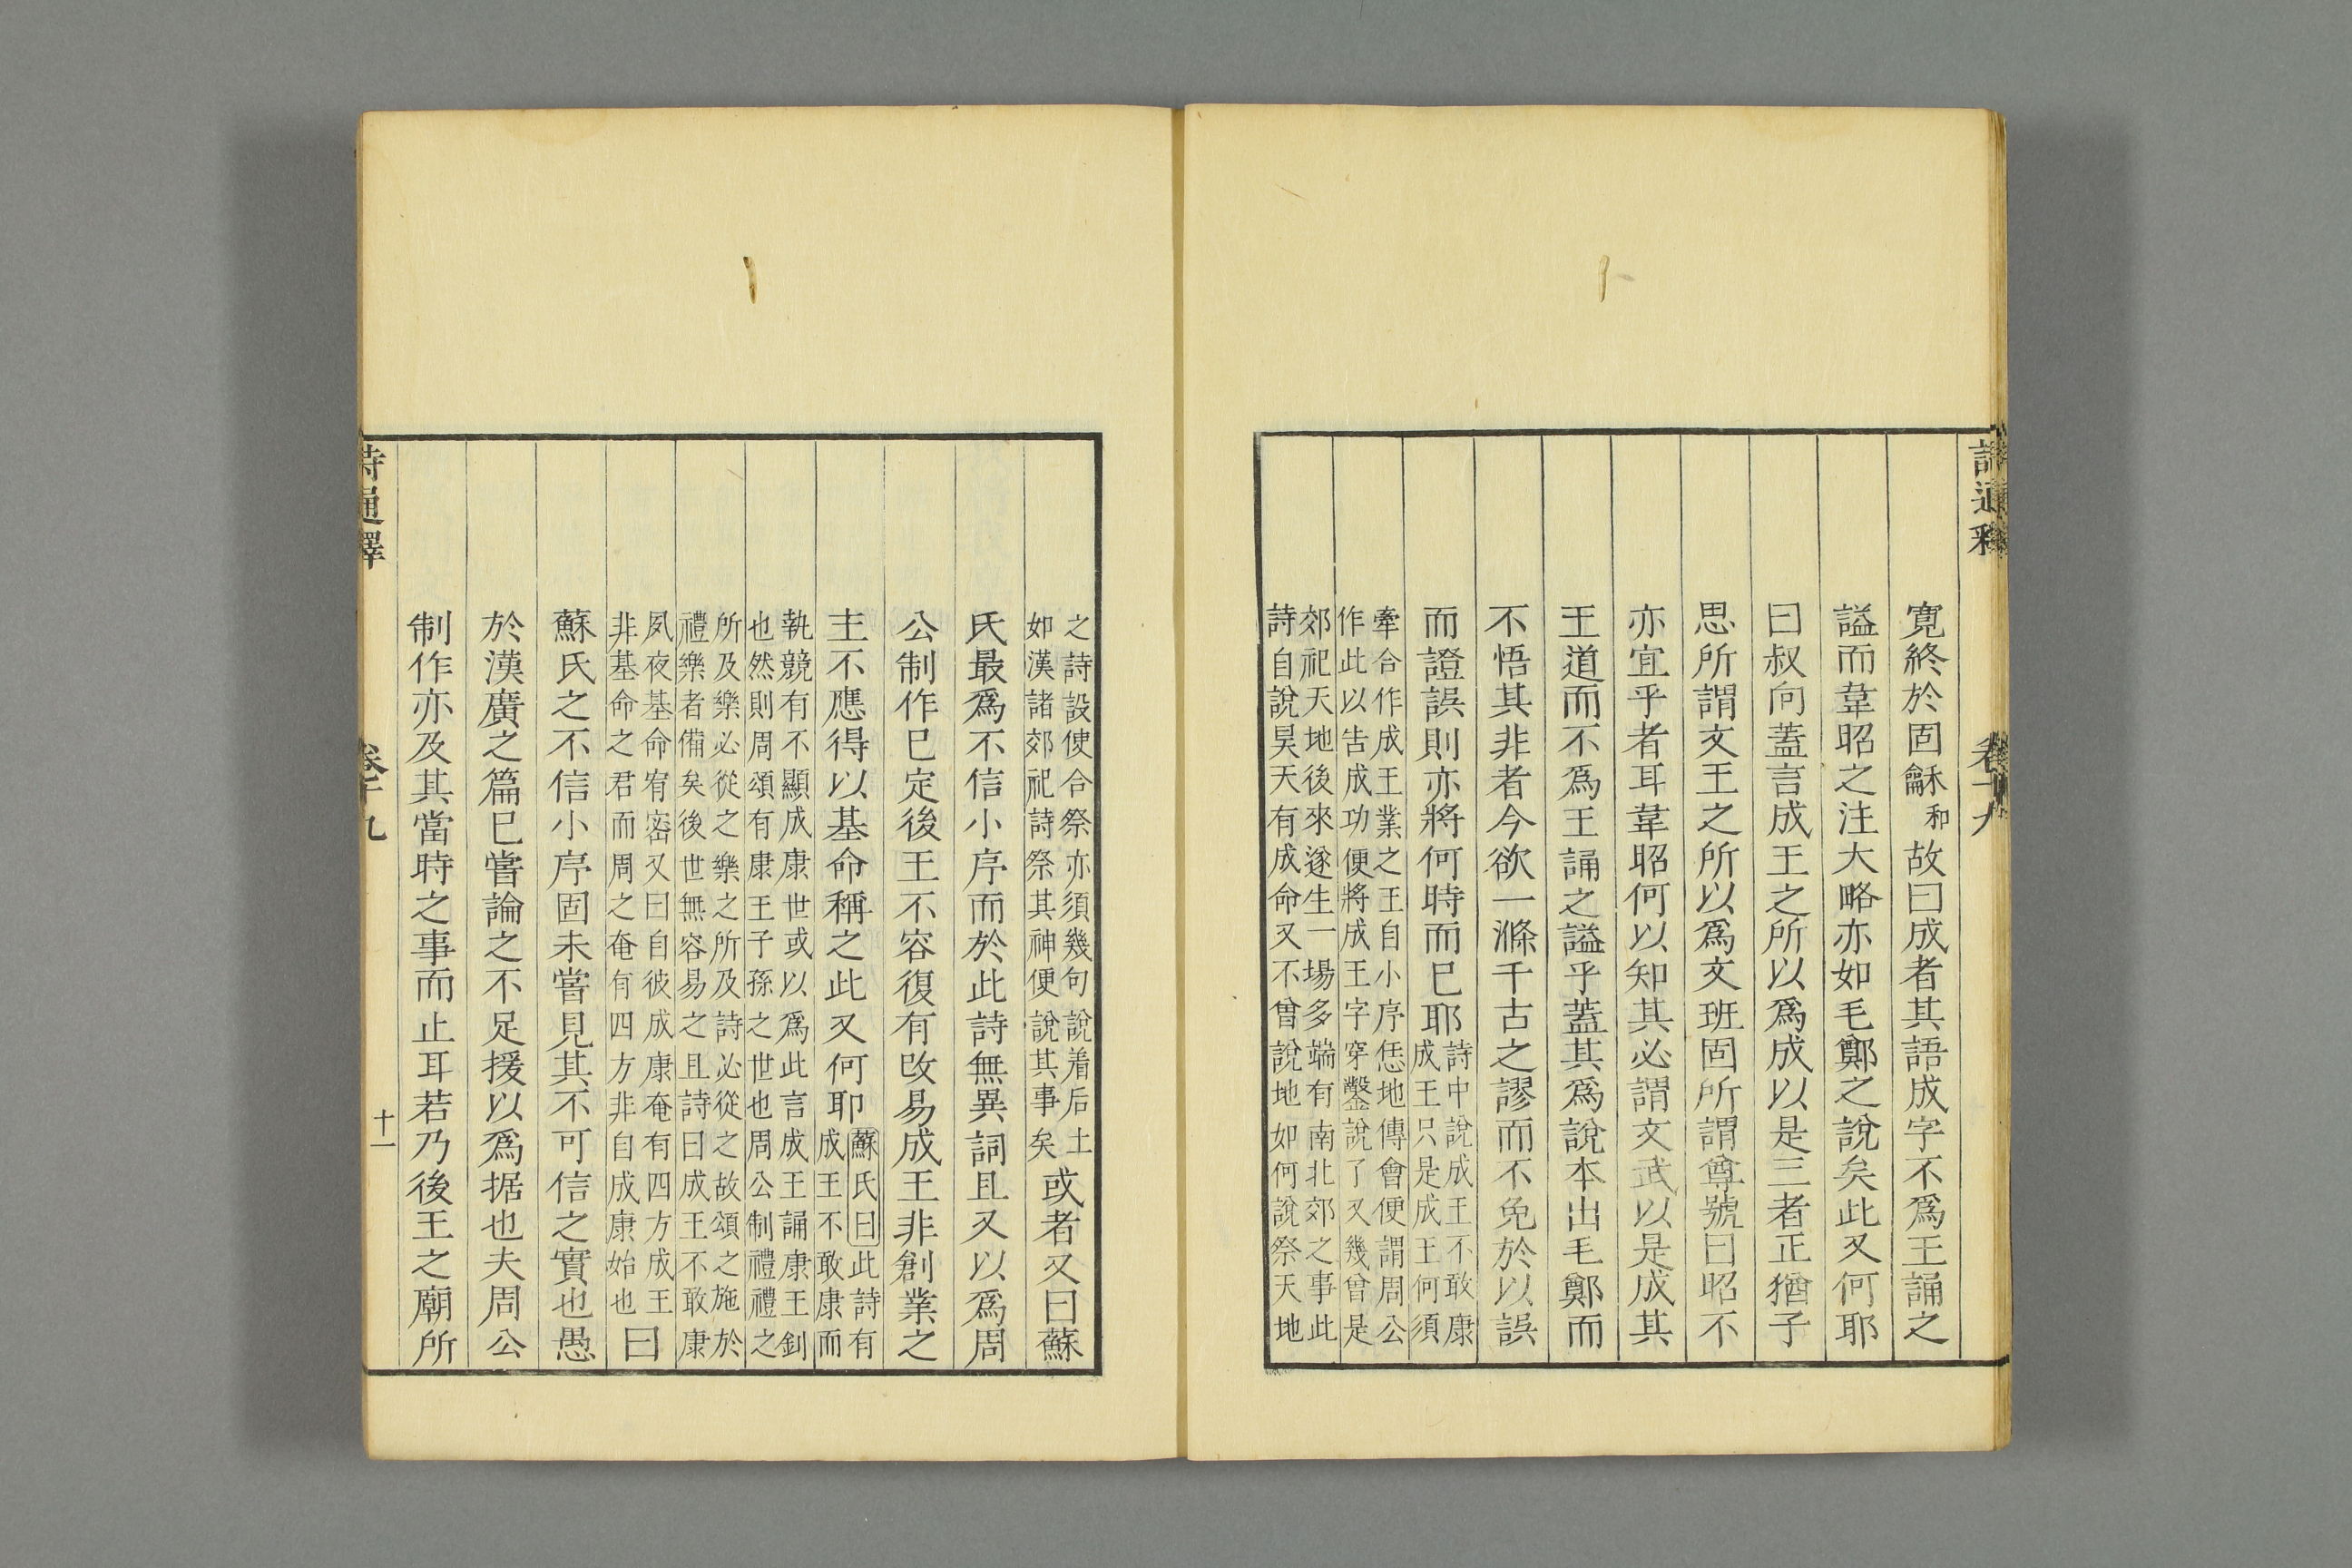 詩通釋
卷十九
寛終於固龢和故曰成者其語成字不爲王誦之
謚而韋昭之注大略亦如毛鄭之說矣此又何耶
曰叔向蓋言成王之所以爲成以是三者正猶子
思所謂文王之所以爲文班固所謂尊號曰昭不
亦宜乎者耳韋昭何以知其必謂文武以是成其
王道而不爲王誦之謚乎蓋其爲說本出毛鄭而
不悟其非者今欲一滌千古之謬而不免於以誤
而證誤則亦將何時而已耶
詩中說成王不敢康
成王只是成王何須
牽合作成王業之王自小序恁地傳會便謂周公
作此以告成功便將成王字穿鑿說了又幾曾是
郊祀天地後來遂生一場多端有南北郊之事此
詩自說昊天有成命又不曾說地如何說祭天地
之詩設使合祭亦須幾句說着后土
如漢諸郊祀詩祭其神便說其事矣
或者又曰蘇
氏最爲不信小序而於此詩無異詞且又以爲周
公制作已定後王不容復有改易成王非創業之
主不應得以基命稱之此又何耶
蘇氏曰此詩有
成王不敢康而
執競有不顯成康世或以爲此言成王誦康王釗
也然則周頌有康王子孫之世也周公制禮禮之
所及樂必從之樂之所及詩必從之故頌之施於
禮樂者備矣後世無容易之且詩曰成王不敢康
夙夜基命宥密又曰自彼成康奄有四方成王
非基命之君而周之奄有四方非自成康始也
曰
蘇氏之不信小序固未嘗見其不可信之實也愚
於漢廣之篇已嘗論之不足援以爲据也夫周公
制作亦及其當時之事而止耳若乃後王之廟所
詩通釋
卷十九
十一